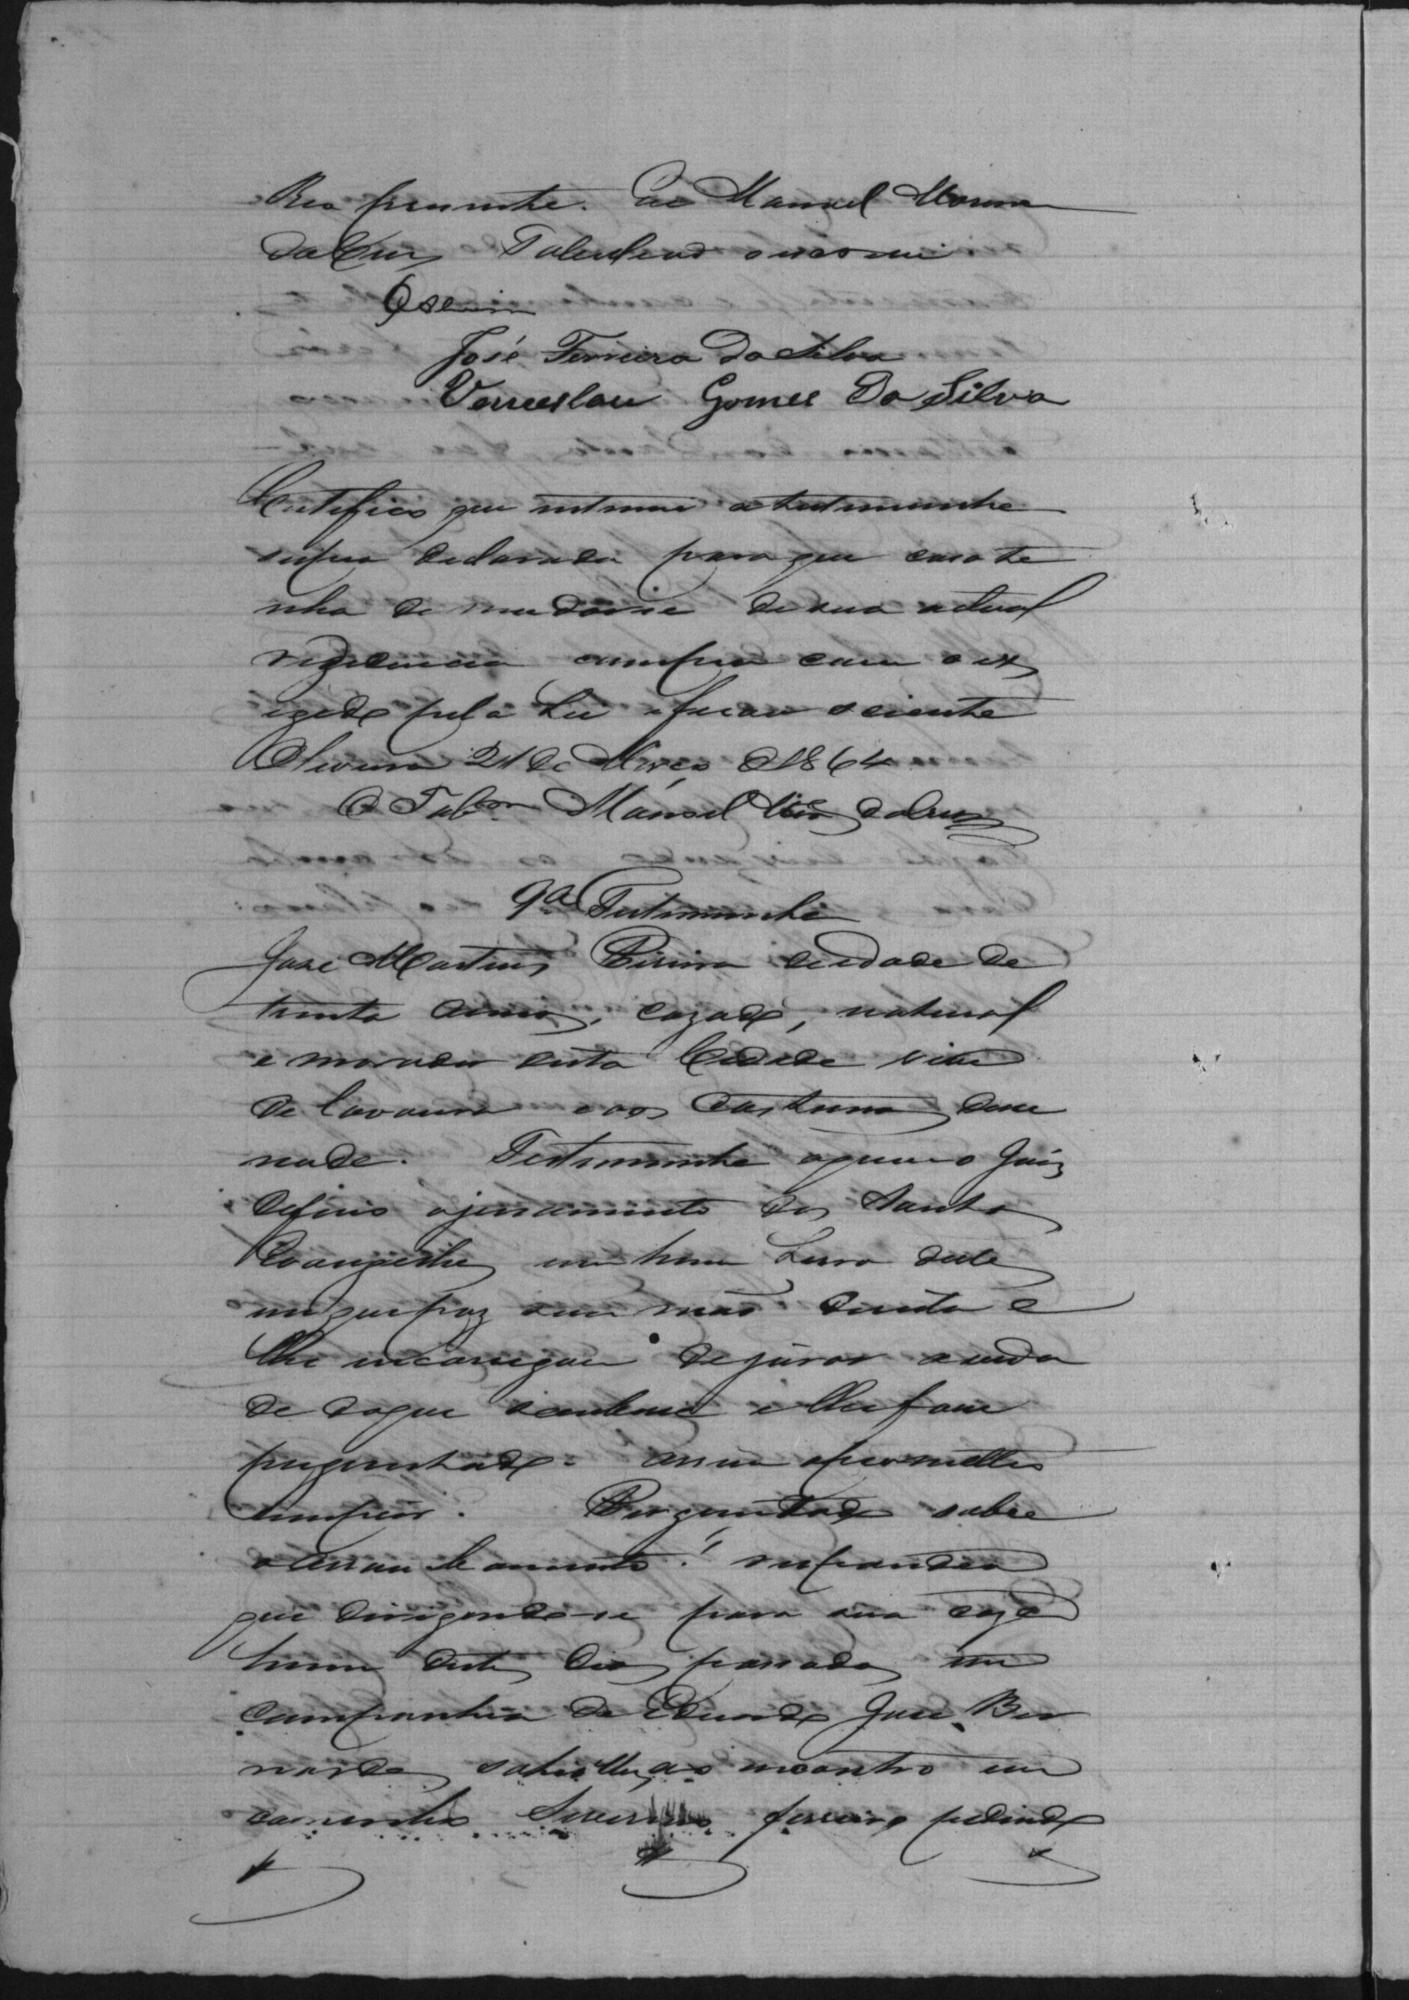 Reo presente. Eu Manoel Moreira
da Cruz Tabeliaõ o escrevi
Oseira
José Ferreira da Silva
Venceslau Gomes Da Silva
Certifico que intimei a testemunha
supra declarada para que caso te
nha de mudarse de sua actual
rezidencia cumpra com o ex
igido pela Lei e ficou sciente
Oliveira 21 de Março d 1864
O Tab.am Manoel da Cruz
9a Testemunha
José Martins Pereira de idade de
trinta annos, cazado, natural
e morador desta Cidade vive
de lavoura e aos Custumes disse
nada. Testemunha a quem o Juiz
deferio o juramento dos Santos
Evangelhos em hum Livro delles
em que poz sua mão direita e
lhe encarregou de jurar a verda
de do que soubesse e lhe fosse
preguntado. assim o prometteo
cumprir. Perguntado sobre
o respondeo
que dirigindo-se para sua caza
hum destes dias passados em
companhia de Eduardo José Ber
nardes sahio lhes ao encontro um
caminho Severino pedindo